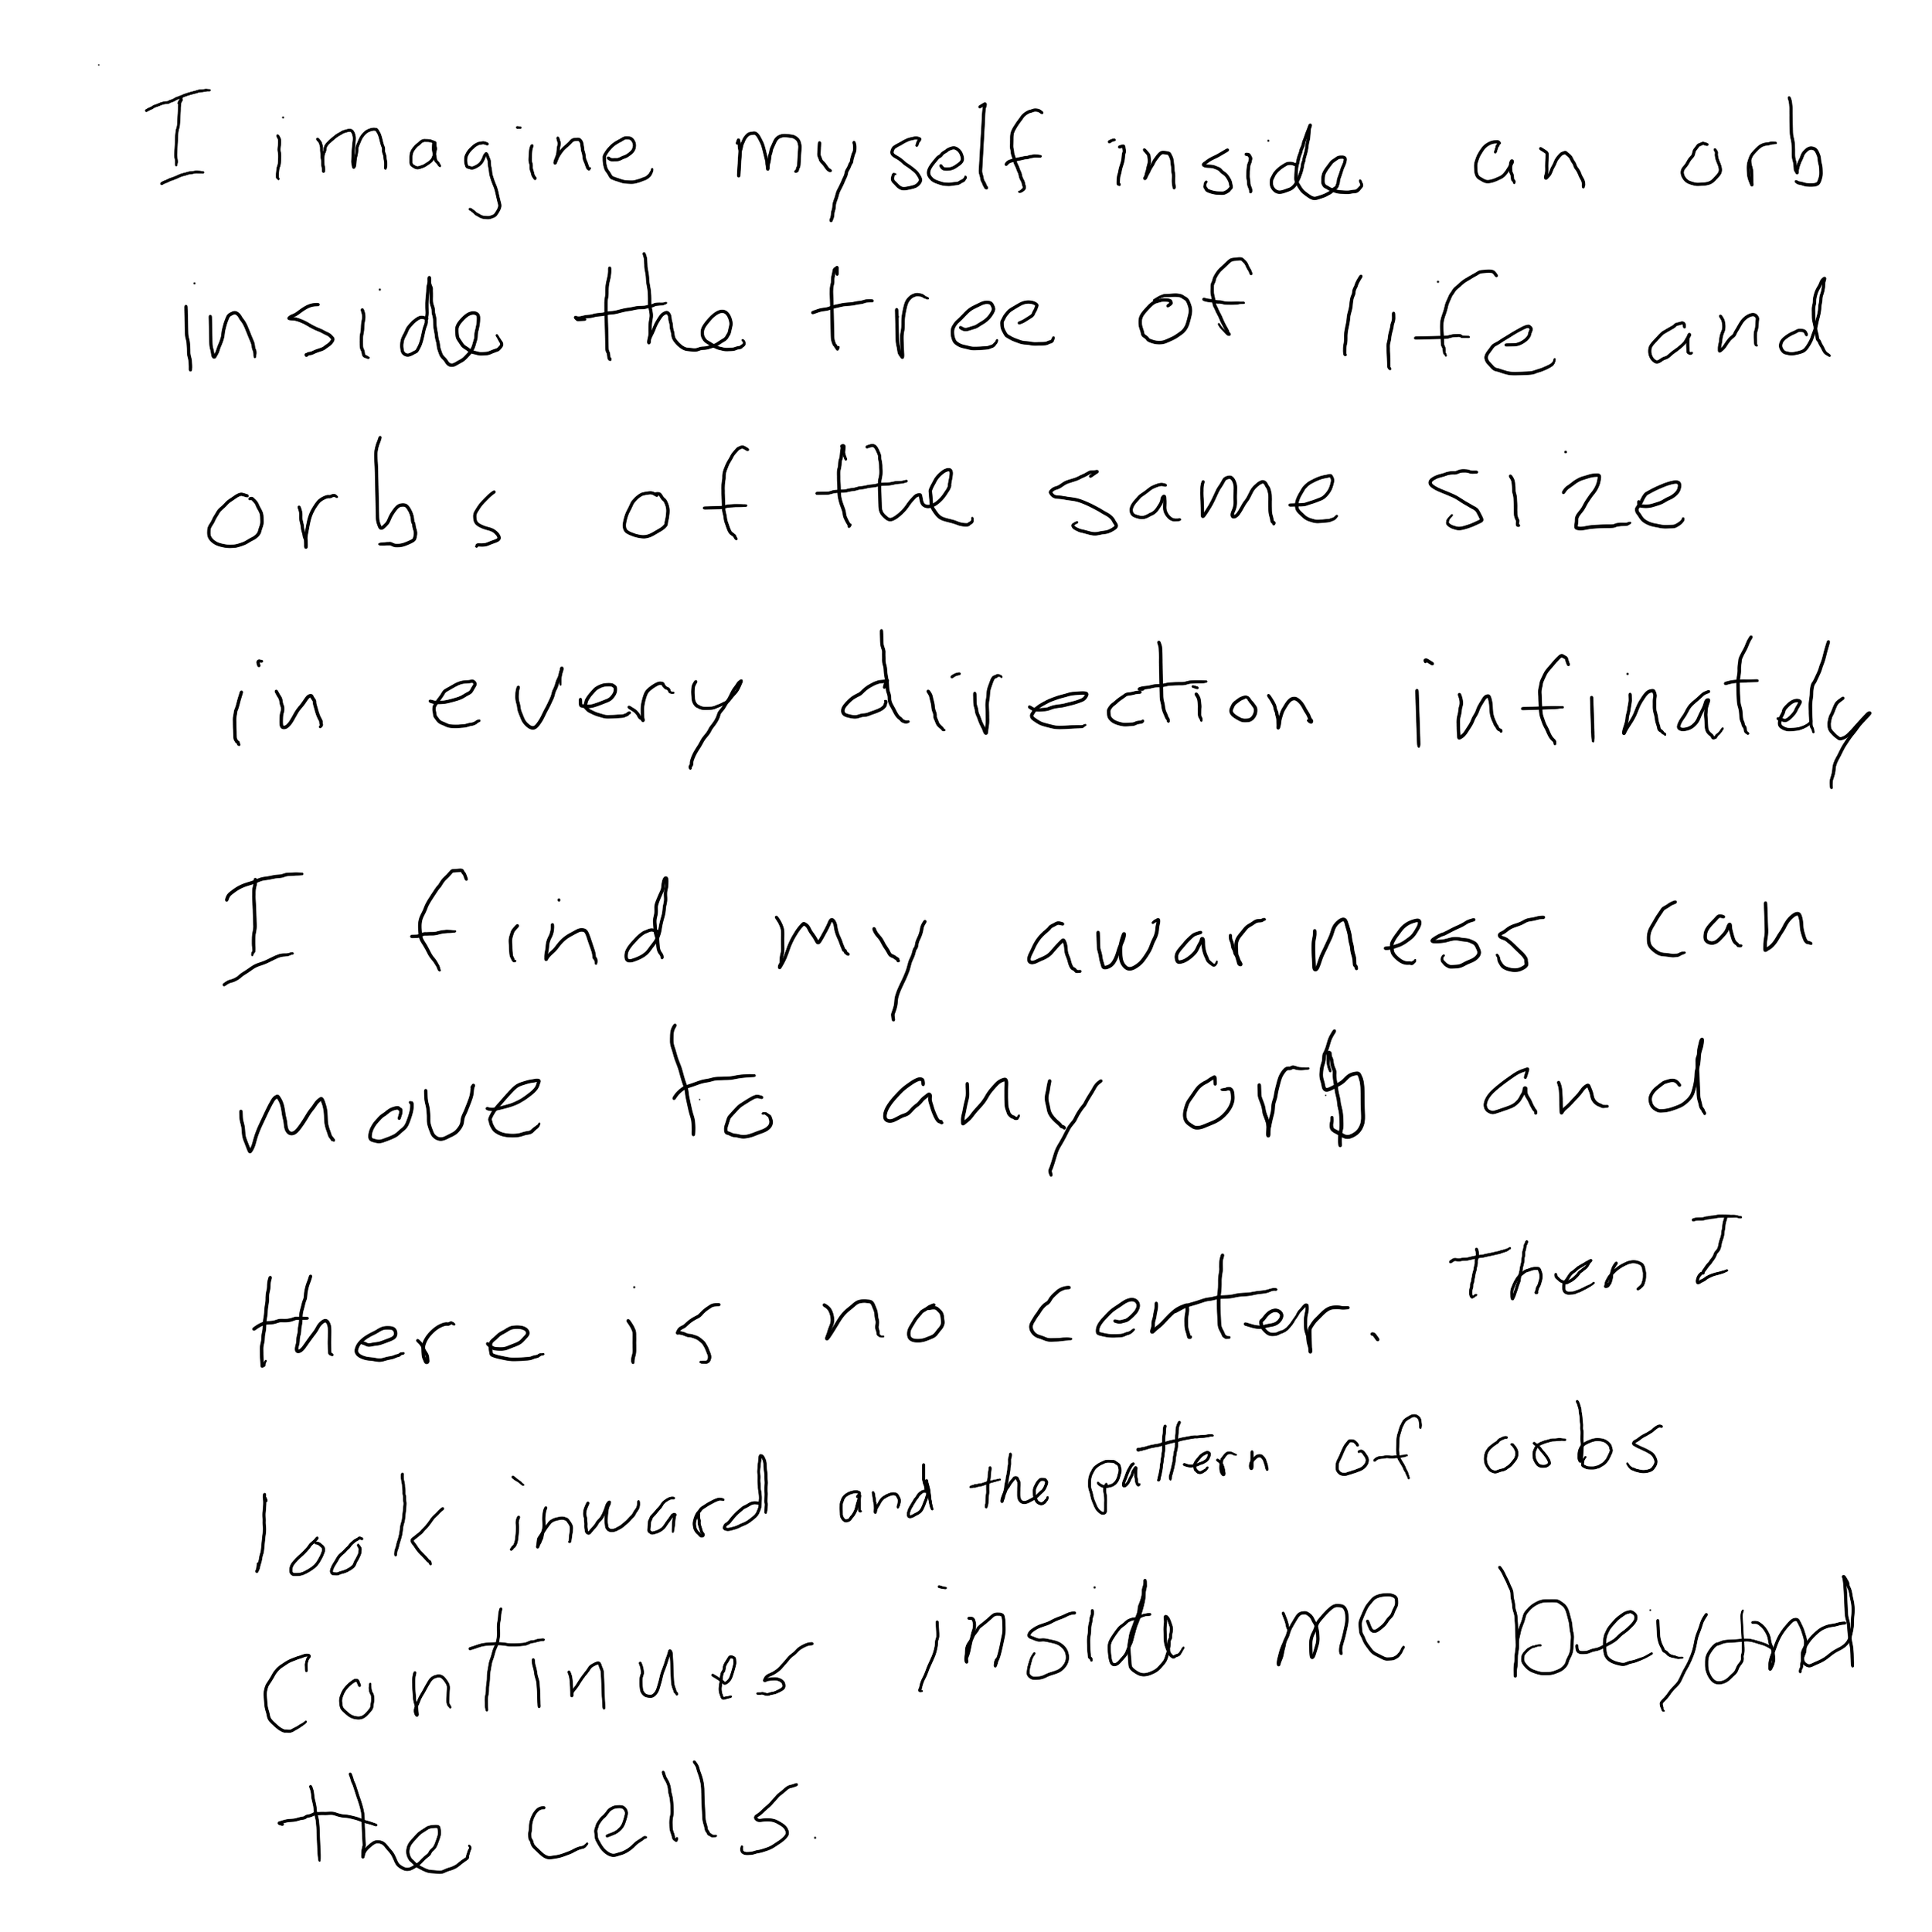 I imagine myself inside an orb
inside the tree of life and
orbs of the same size
in every direction infinately
I find my awarness can
move to any orb and
there is no center. Then I
look inward and the pattern of orbs
continues inside me beyond
the cells.